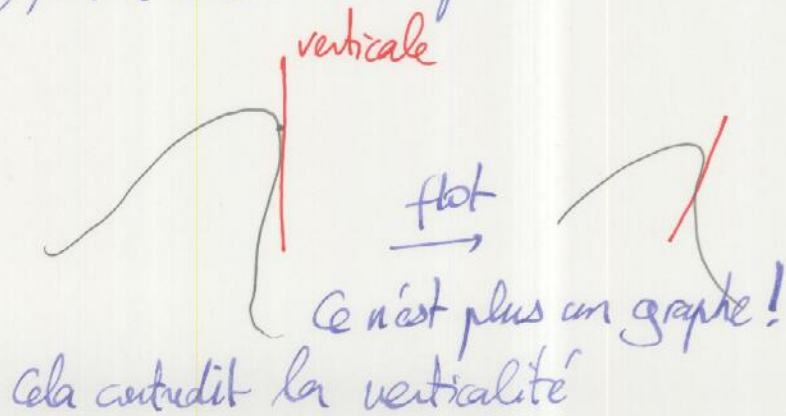 verticale
flot
Ce n'est plus un graphe !
Cela contredit la verticalité